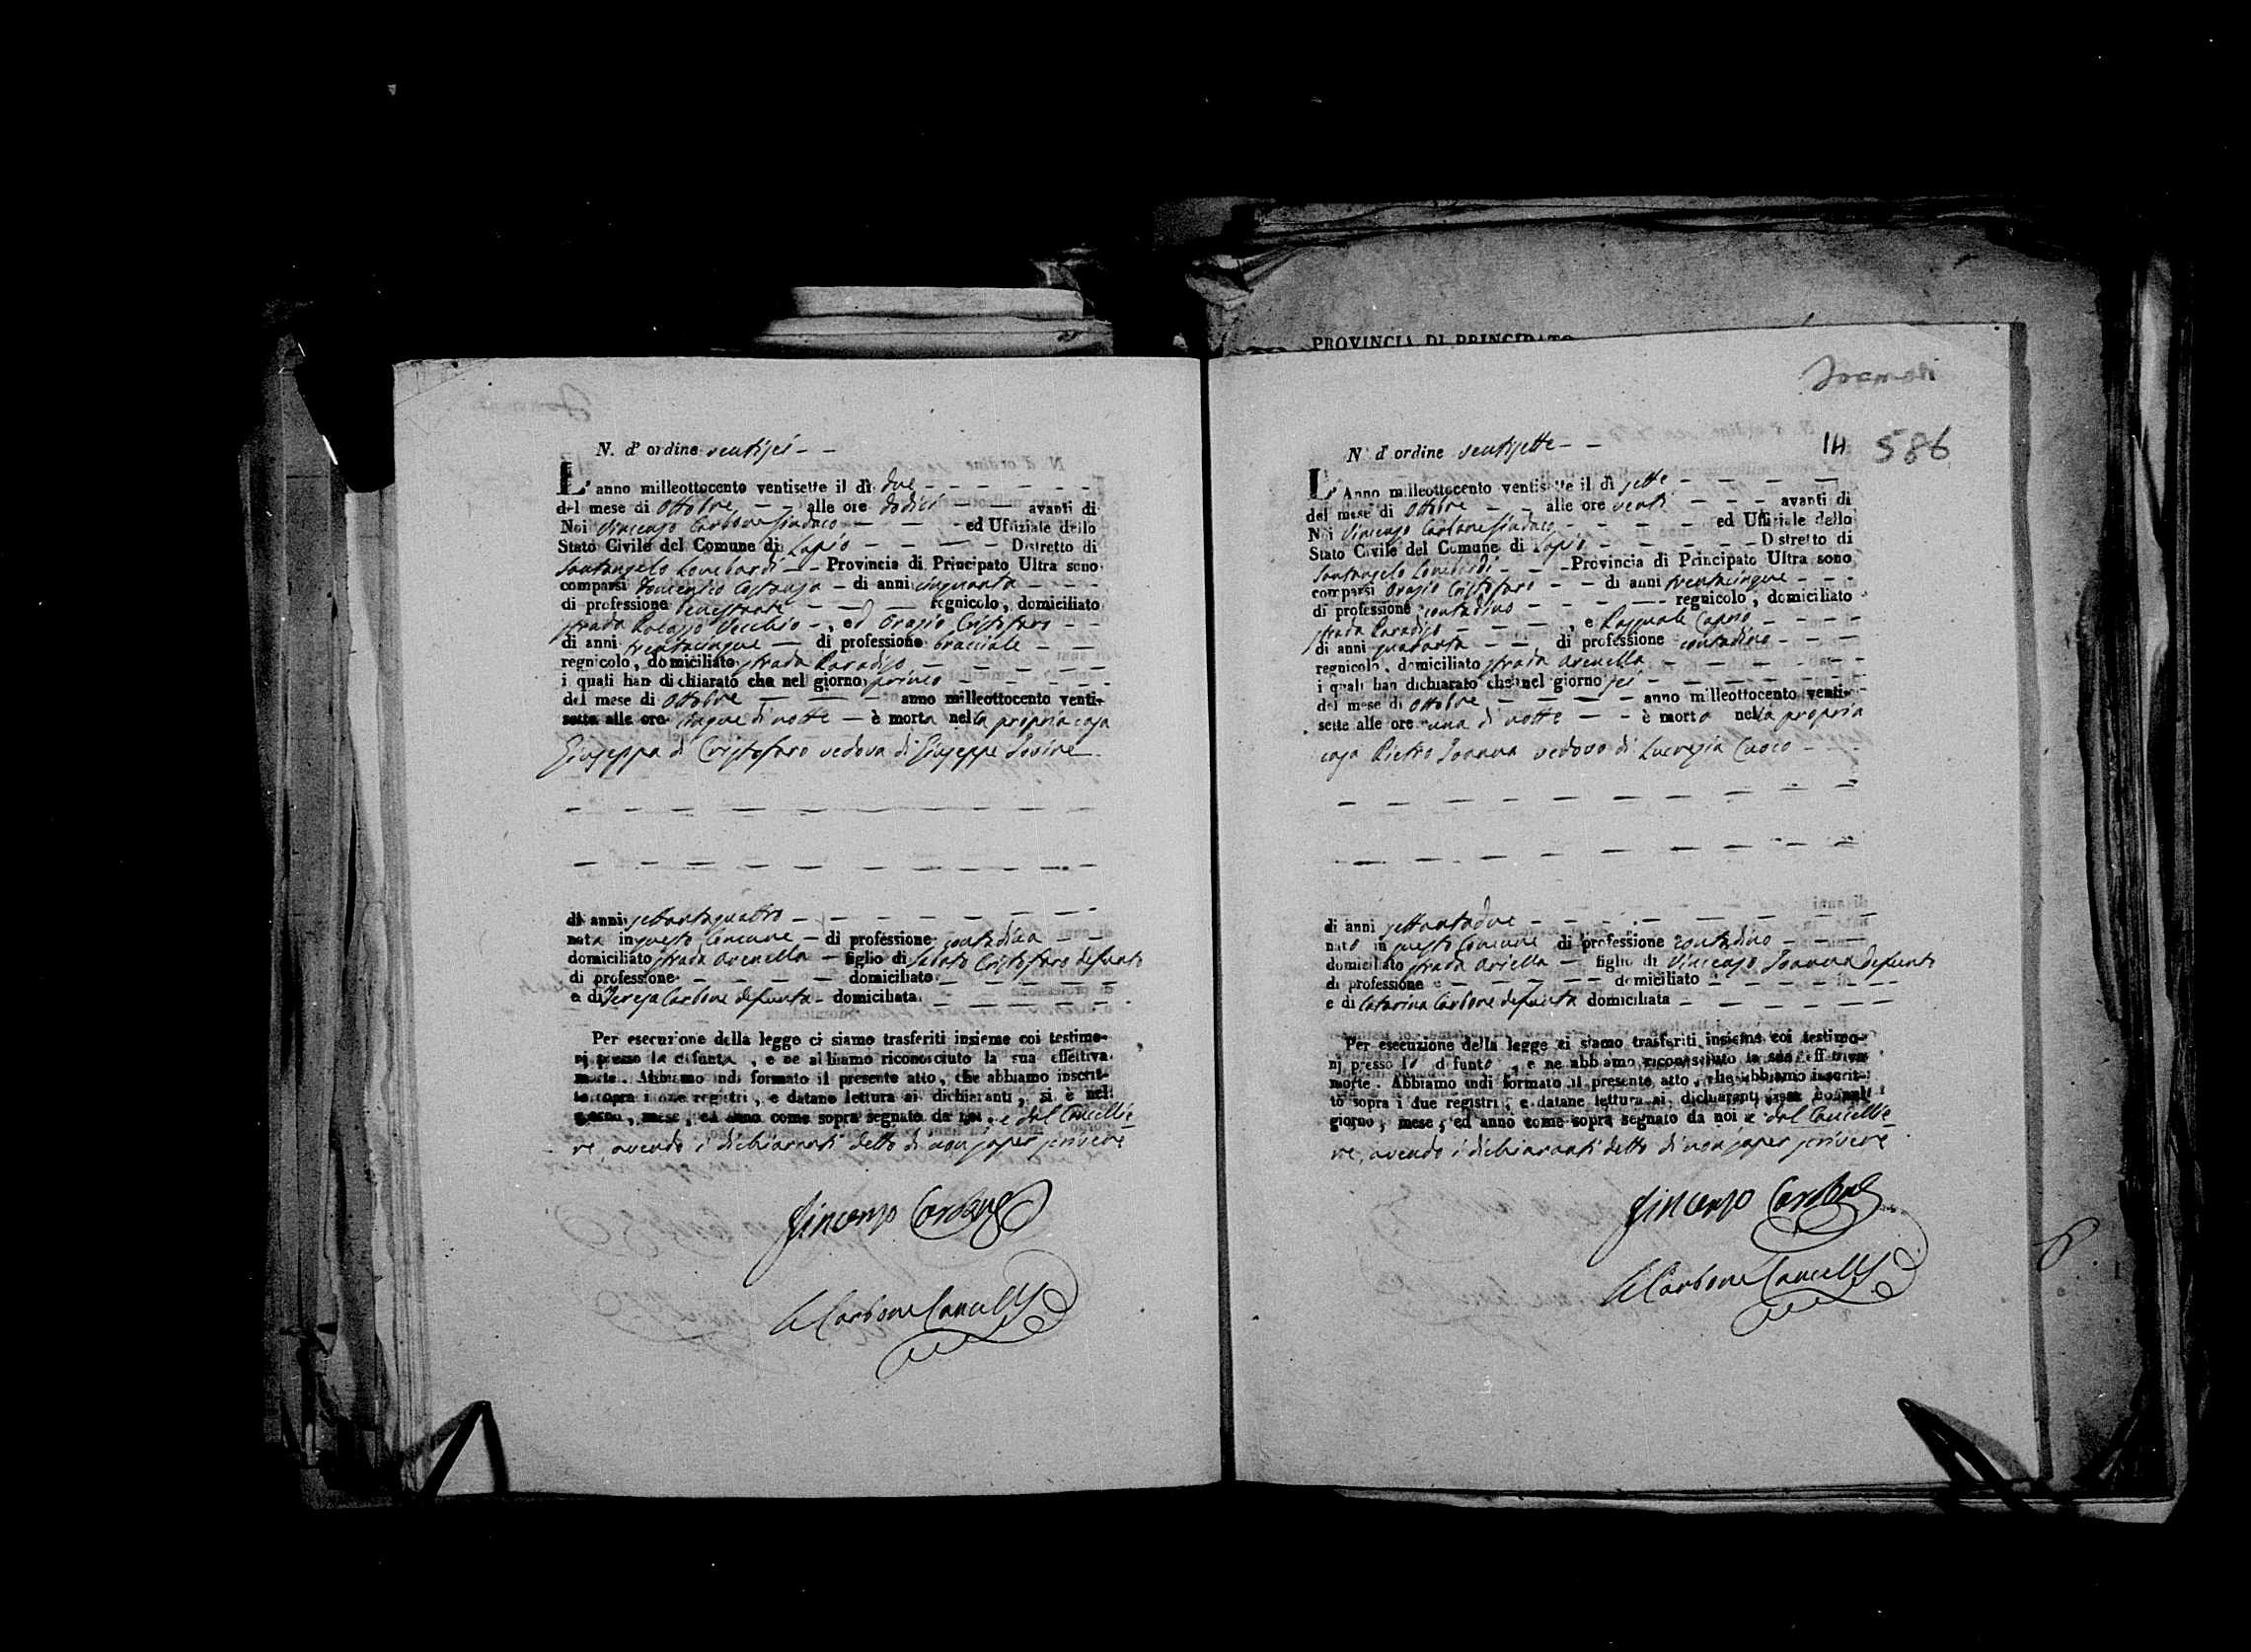 N. d' ordine ventisei - -
L' anno milleottocento ventisette il dì due - - - - - -
del mese di Ottobre - - alle ore dodici - - avanti di
Noi Vincenzo Carbone Sindaco - - - ed Uffiziale dello
Stato Civile del Comune di Lapio - - - - Distretto di
Santangelo Lombardi - - Provincia di Principato Ultra sono
comparsi Domenico Costanza - di anni cinquanta - - -
di professione benestante - - - regnicolo, domiciliato
strada Palazzo Vecchio -, ed Orazio Cristofaro - -
di anni trentacinque - di professione bracciale - -
regnicolo, domiciliato strada Paradiso - - - - -
i quali han dichiarato che nel giorno primo - - - - -
del mese di Ottobre - - - anno milleottocento venti-
sette alle ore cinque di notte - è morta nella propria casa
Giuseppa di Cristofaro vedova di Giuseppe Iovine
di anni settantaquattro - - - - - - -
nata in questo Comune - di professione contadina - -
domiciliato strada Arenella - figlio di Sabato Cristofaro defunto
di professione - - - - domiciliato - - - - -
e di Teresa Carbone defunta - domiciliata - - - - -
Per esecuzione della legge ci siamo trasferiti insieme coi testimo-
nj presso la defunta, e ne abbiamo riconosciuto la sua effettiva
morte. Abbiamo indi formato il presente atto, che abbiamo inscrit-
to sopra i due registri, e datane lettura ai dichiaranti, si è nel
giorno, mese, ed anno come sopra segnato da noi, e dal Cancellie
re, avendo i dichiaranti detto di non saper scrivere
Vincenzo Carbone
Carbone Cancell
PROVINCIA DI PRINCIPATO
14 586
N. d' ordine ventisette - -
L' Anno milleottocento ventisette il dì sette - - - -
del mese di Ottobre - - alle ore venti - - - avanti di
Noi Vincenzo Carbone Sindaco - - - - ed Uffiziale dello
Stato Civile del Comune di Lapio - - - - - Distretto di
Santangelo Lombardi - - - Provincia di Principato Ultra sono
comparsi Orazio Cristofaro - - di anni trentacinque - - -
di professione contadino - - - - regnicolo, domiciliato
strada Paradiso - - - , e Pasquale Caprio - - - -
di anni quaranta - - di professione contadino - - -
regnicolo, domiciliato strada Arenella - - - - - -
i quali han dichiarato che nel giorno sei - - - - - -
del mese di Ottobre - - - - anno milleottocento venti-
sette alle ore una di notte - - è morto nella propria
casa Pietro Ioanna vedovo di Lucrezia Cuoco - -
di anni settantadue - - - - - - - -
nato in questo Comune di professione contadino - - -
domiciliato strada Ariella - figlio di Vincenzo Ioanna defunto
di professione - - - - - domiciliato - - - - -
e di Catarina Carbone defunta domiciliata - - - - -
Per esecuzione della legge ci siamo trasferiti insieme coi testimo-
nj presso lo defunto, e ne abbiamo riconosciuto la sua effettiva
morte. Abbiamo indi formato il presente atto, che abbiamo inscrit-
to sopra i due registri, e datane lettura ai dichiaranti, si è nel
giorno, mese, ed anno come sopra segnato da noi e dal Cancellie
re, avendo i dichiaranti detto di non saper scrivere
Vincenzo Carbone
Carbone Cancell